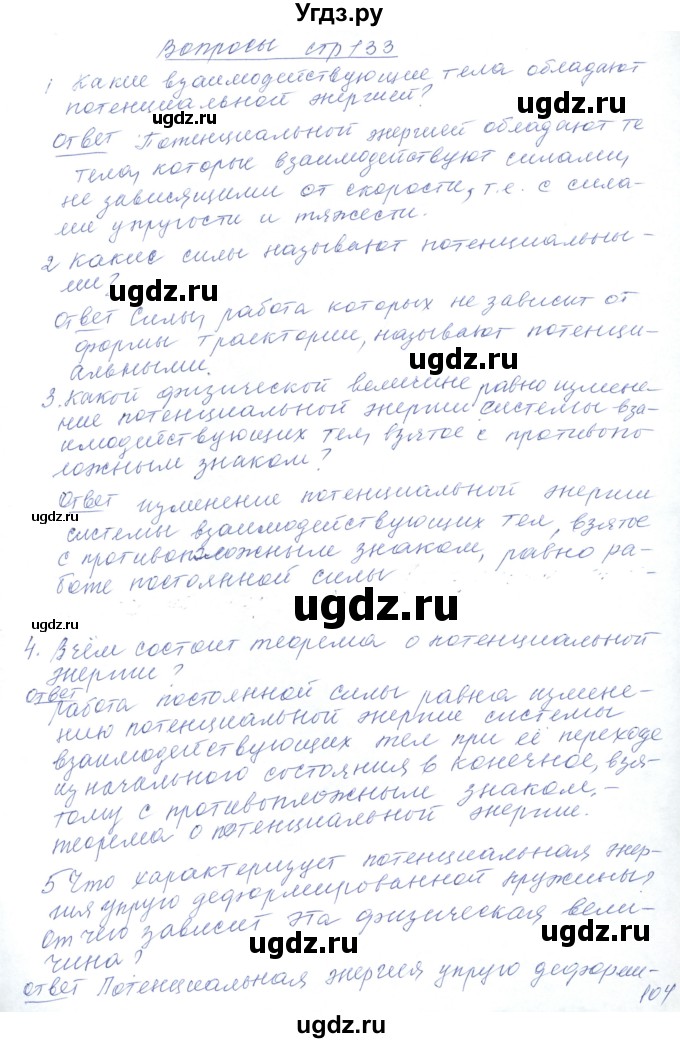 Угдз.ру
Вопросы стр 133
1 Какие взаимодействующие тела обладают
потенциальной энергией?
ugdz.ru
ugdz.ru
Ответ Потенциальной энергией обладают те
тела, которые взаимодействуют силами,
не зависящими от скорости, т.е. с сила-
ми упругости и тяжести.
2 Какие силы называют потенциальны-
ми?
ugdz.ru
Ответ Силы, работа которых не зависит от
формы траектории, называют потенци-
альными.
ugdz.ru
3. Какой физической величине равно измене-
ние потенциальной энергии системы вза-
имодействующих тел, взятое с противопо
ложным знаком?
Ответ изменение потенциальной энергии
ugdz.ru
системы взаимодействующих тел, взятое
с противоположным знаком, равно ра-
боте постоянной силы
ugdz.ru
ugdz.ru
4. В чём состоит теорема о потенциальной
энергии?
ответ
Работа постоянной силы равна измене-
нию потенциальной энергии системы
взаимодействующих тел при её переходе
из начального состояния в конечное, взя-
тому с противопложным знаком, -
теорема о потенциальной энергии.
5 Что характеризует потенциальная энер-
гия упруго деформированной пружины?
От чего зависит эта физическая вели-
чина?
ugdz.ru
ugdz.ru
ответ Потенциальная энергия упруго деформи-
104
ugdz.ru